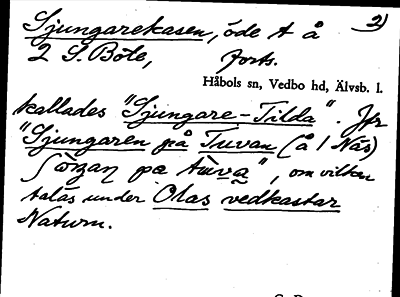 2)
Sjungarekasen, öde t å
2 S. Böle, forts.
Håbols sn, Vedbo hd, Älvsb. l.
kallades "Sjungare-Tilda". Jfr
"Sjungaren på Tuvan (å 1 Näs)
pa tùva", om vilken
talas under Olas vedkastar
Naturn.